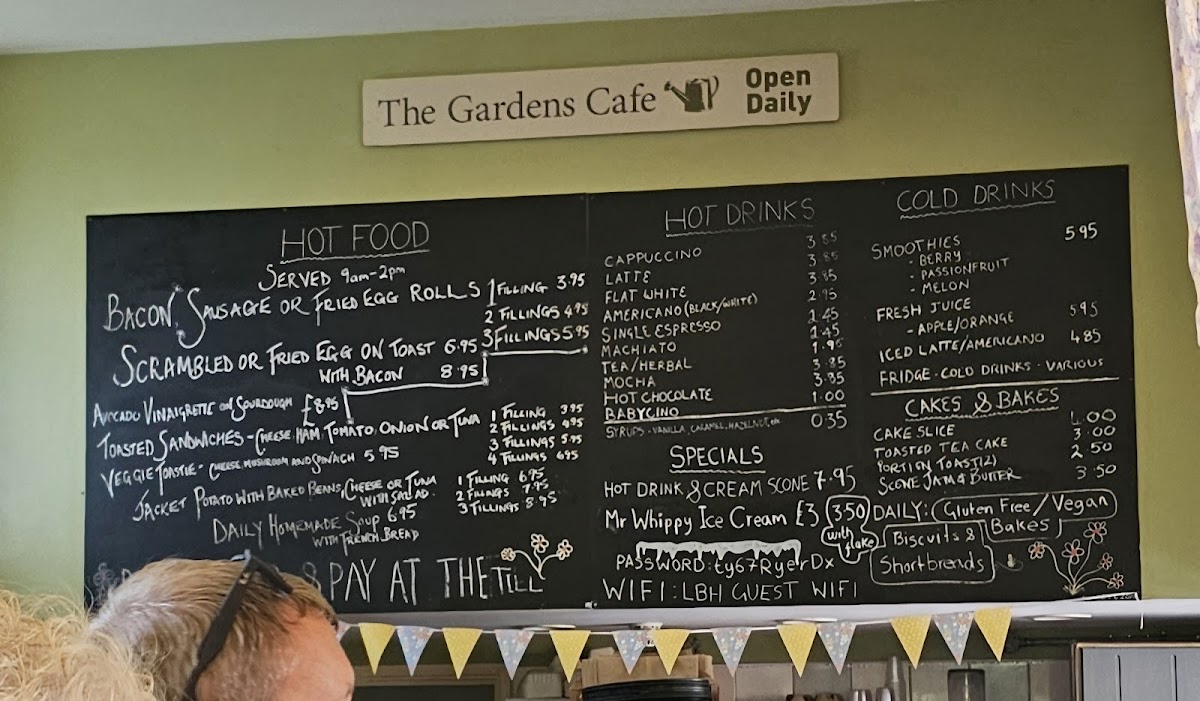 The Gardens Cafe
Open
Daily
HOT FOOD
SERVED 9am-2pm
BACON, SAUSAGE OR FRIED EGG ROLLS
1 FILLING 3.95
2 FILLINGS 4.95
3 FILLINGS 5.95
SCRAMBLED OR FRIED EGG ON TOAST 6.95
WITH BACON 8.95
AVOCADO VINAIGRETTE ON SOURDOUGH £8.95
TOASTED SANDWICHES - CHEESE, HAM, TOMATO, ONION OR TUNA
1 FILLING 3.95
2 FILLINGS 4.95
3 FILLINGS 5.95
4 FILLINGS 6.95
VEGGIE TOASTIE - CHEESE, MUSHROOM AND SPINACH 5.95
JACKET POTATO WITH BAKED BEANS, CHEESE OR TUNA
WITH SALAD.
1 FILLING 6.95
2 FILLINGS 7.95
3 FILLINGS 8.95
DAILY HOMEMADE SOUP 6.95
WITH FRENCH BREAD
& PAY AT THE TILL
HOT DRINKS
CAPPUCCINO 3.85
LATTE 3.85
FLAT WHITE 3.85
AMERICANO (BLACK/WHITE) 2.95
SINGLE ESPRESSO 2.45
MACHIATO 2.45
TEA/HERBAL 1.95
MOCHA 3.85
HOT CHOCOLATE 3.85
BABYCINO 1.00
SYRUPS - VANILLA, CARAMEL, HAZELNUT, etc 0.35
SPECIALS
HOT DRINK & CREAM SCONE 7.95
Mr Whippy Ice Cream £3 (3.50
with flake)
PASSWORD: ty67RyerDx
WIFI: LBH GUEST WIFI
COLD DRINKS
SMOOTHIES 5.95
- BERRY
- PASSIONFRUIT
- MELON
FRESH JUICE
- APPLE/ORANGE 5.95
ICED LATTE/AMERICANO 4.85
FRIDGE - COLD DRINKS - VARIOUS
CAKES & BAKES
CAKE SLICE 4.00
TOASTED TEA CAKE 3.00
PORTION TOAST(2) 2.50
SCONE JAM & BUTTER 3.50
DAILY: Gluten Free/Vegan
Bakes
Biscuits &
Shortbreads